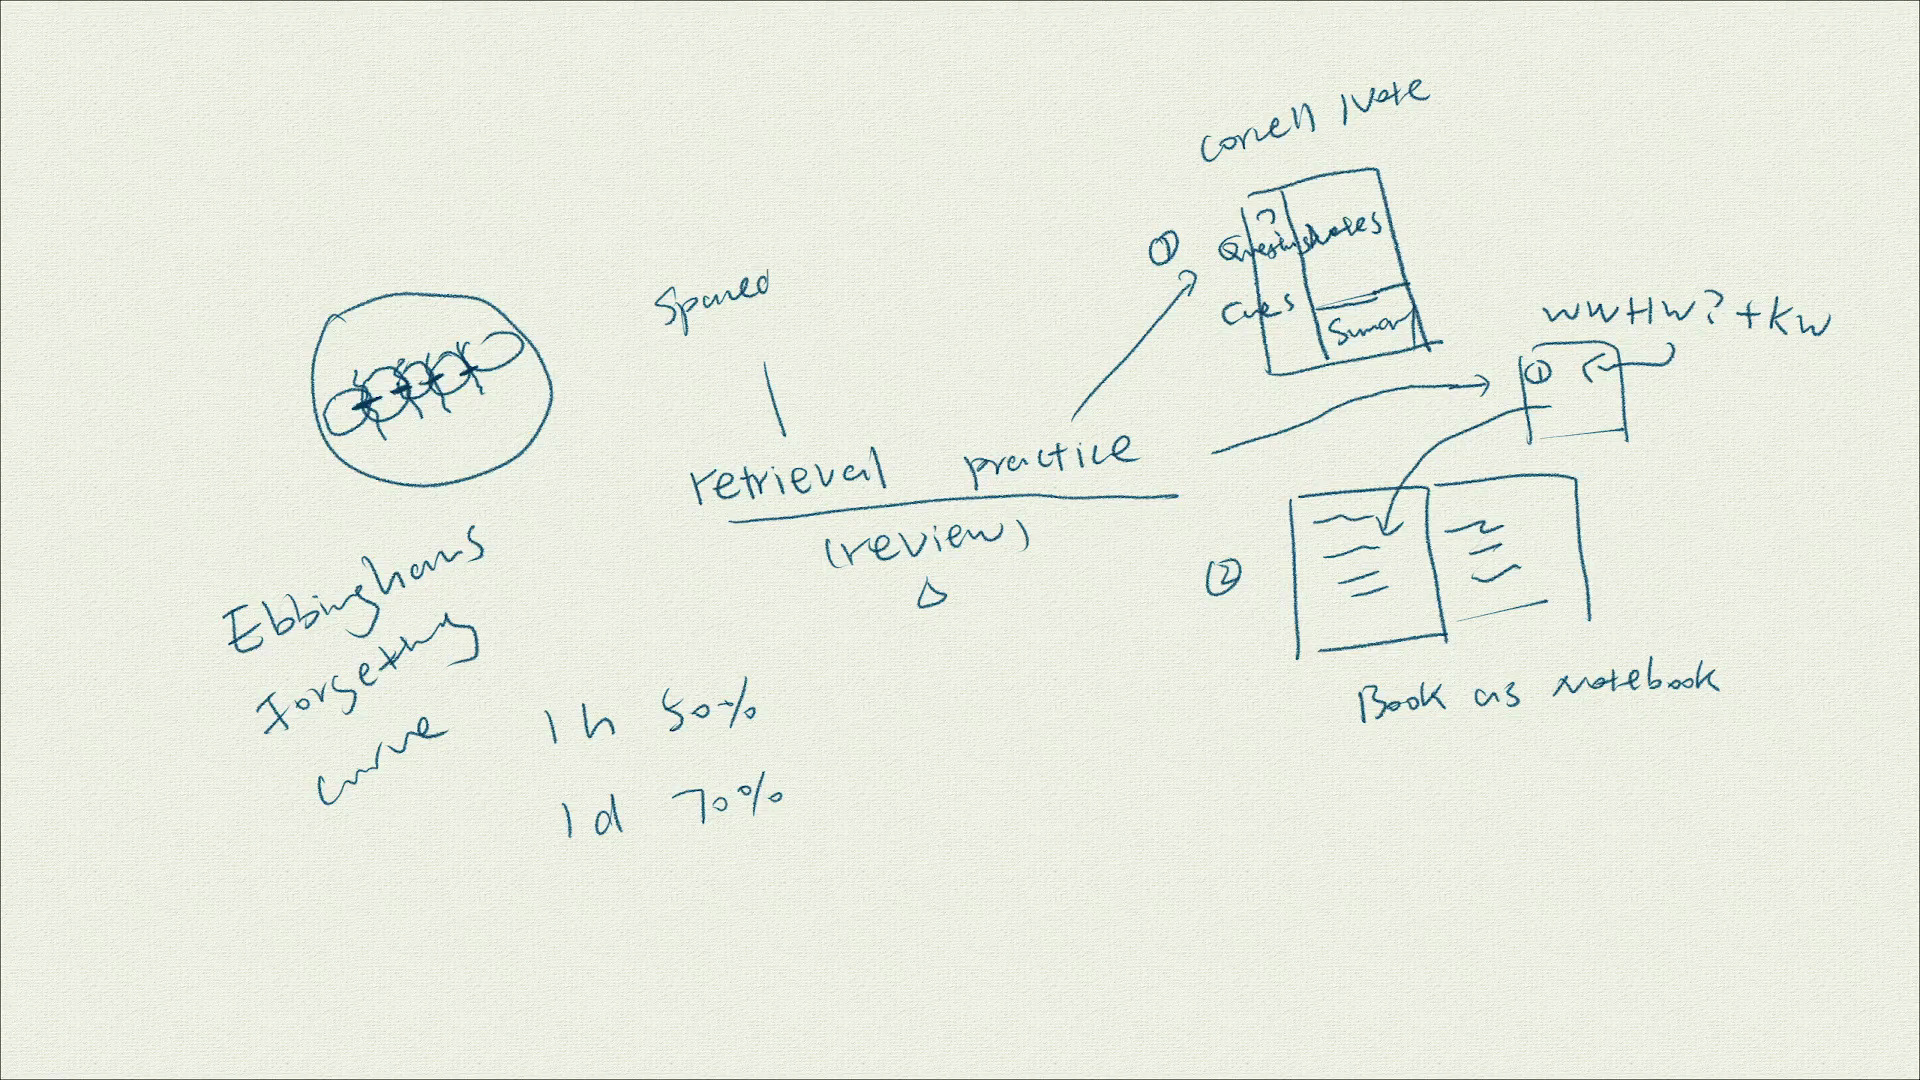 Cornell Note
①
?
Questions
Notes
Cues
Summary
WWHW? + KW
①
Spaced
retrieval practice
(review)
②
Book as notebook
Ebbinghaus
Forgetting
curve
1h 50%
1d 70%